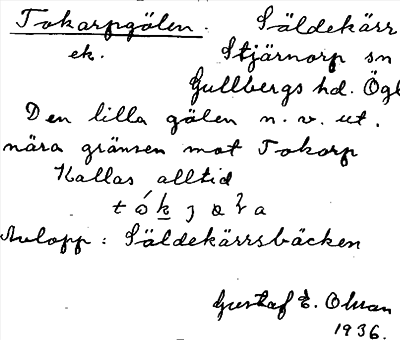 Tokarpgölen. Säldekärr
ek. Stjärnorp sn
Gullbergs hd. Ögl
Den lilla gölen n.v. ut.
nära gränsen mot Tokorp
Kallas alltid
Avlopp: Säldekärrsbäcken
Gustaf E. Olsson
1936.